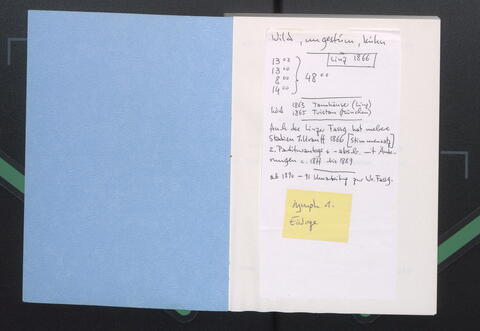 Wild, ungestüm, kühn
Linz 1866
13 02
13 00
8 00
14 00
48 00
1863 Tannhäuser (Linz)
1865 Tristan (München)
Auch der Linzer Fassg. hat mehrere
Stadien 1866 Stimmensatz
2. + - absch. - + Ände-
rungen c. 1877 bis 1889
ab 1890 - 91 Umarbeitung zur Wr. Fassg.
Symph 1.
Einlage